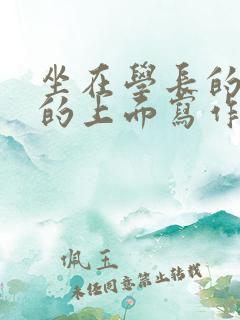 坐在學長的
的上面寫作
佩玉
未经同意禁止转载